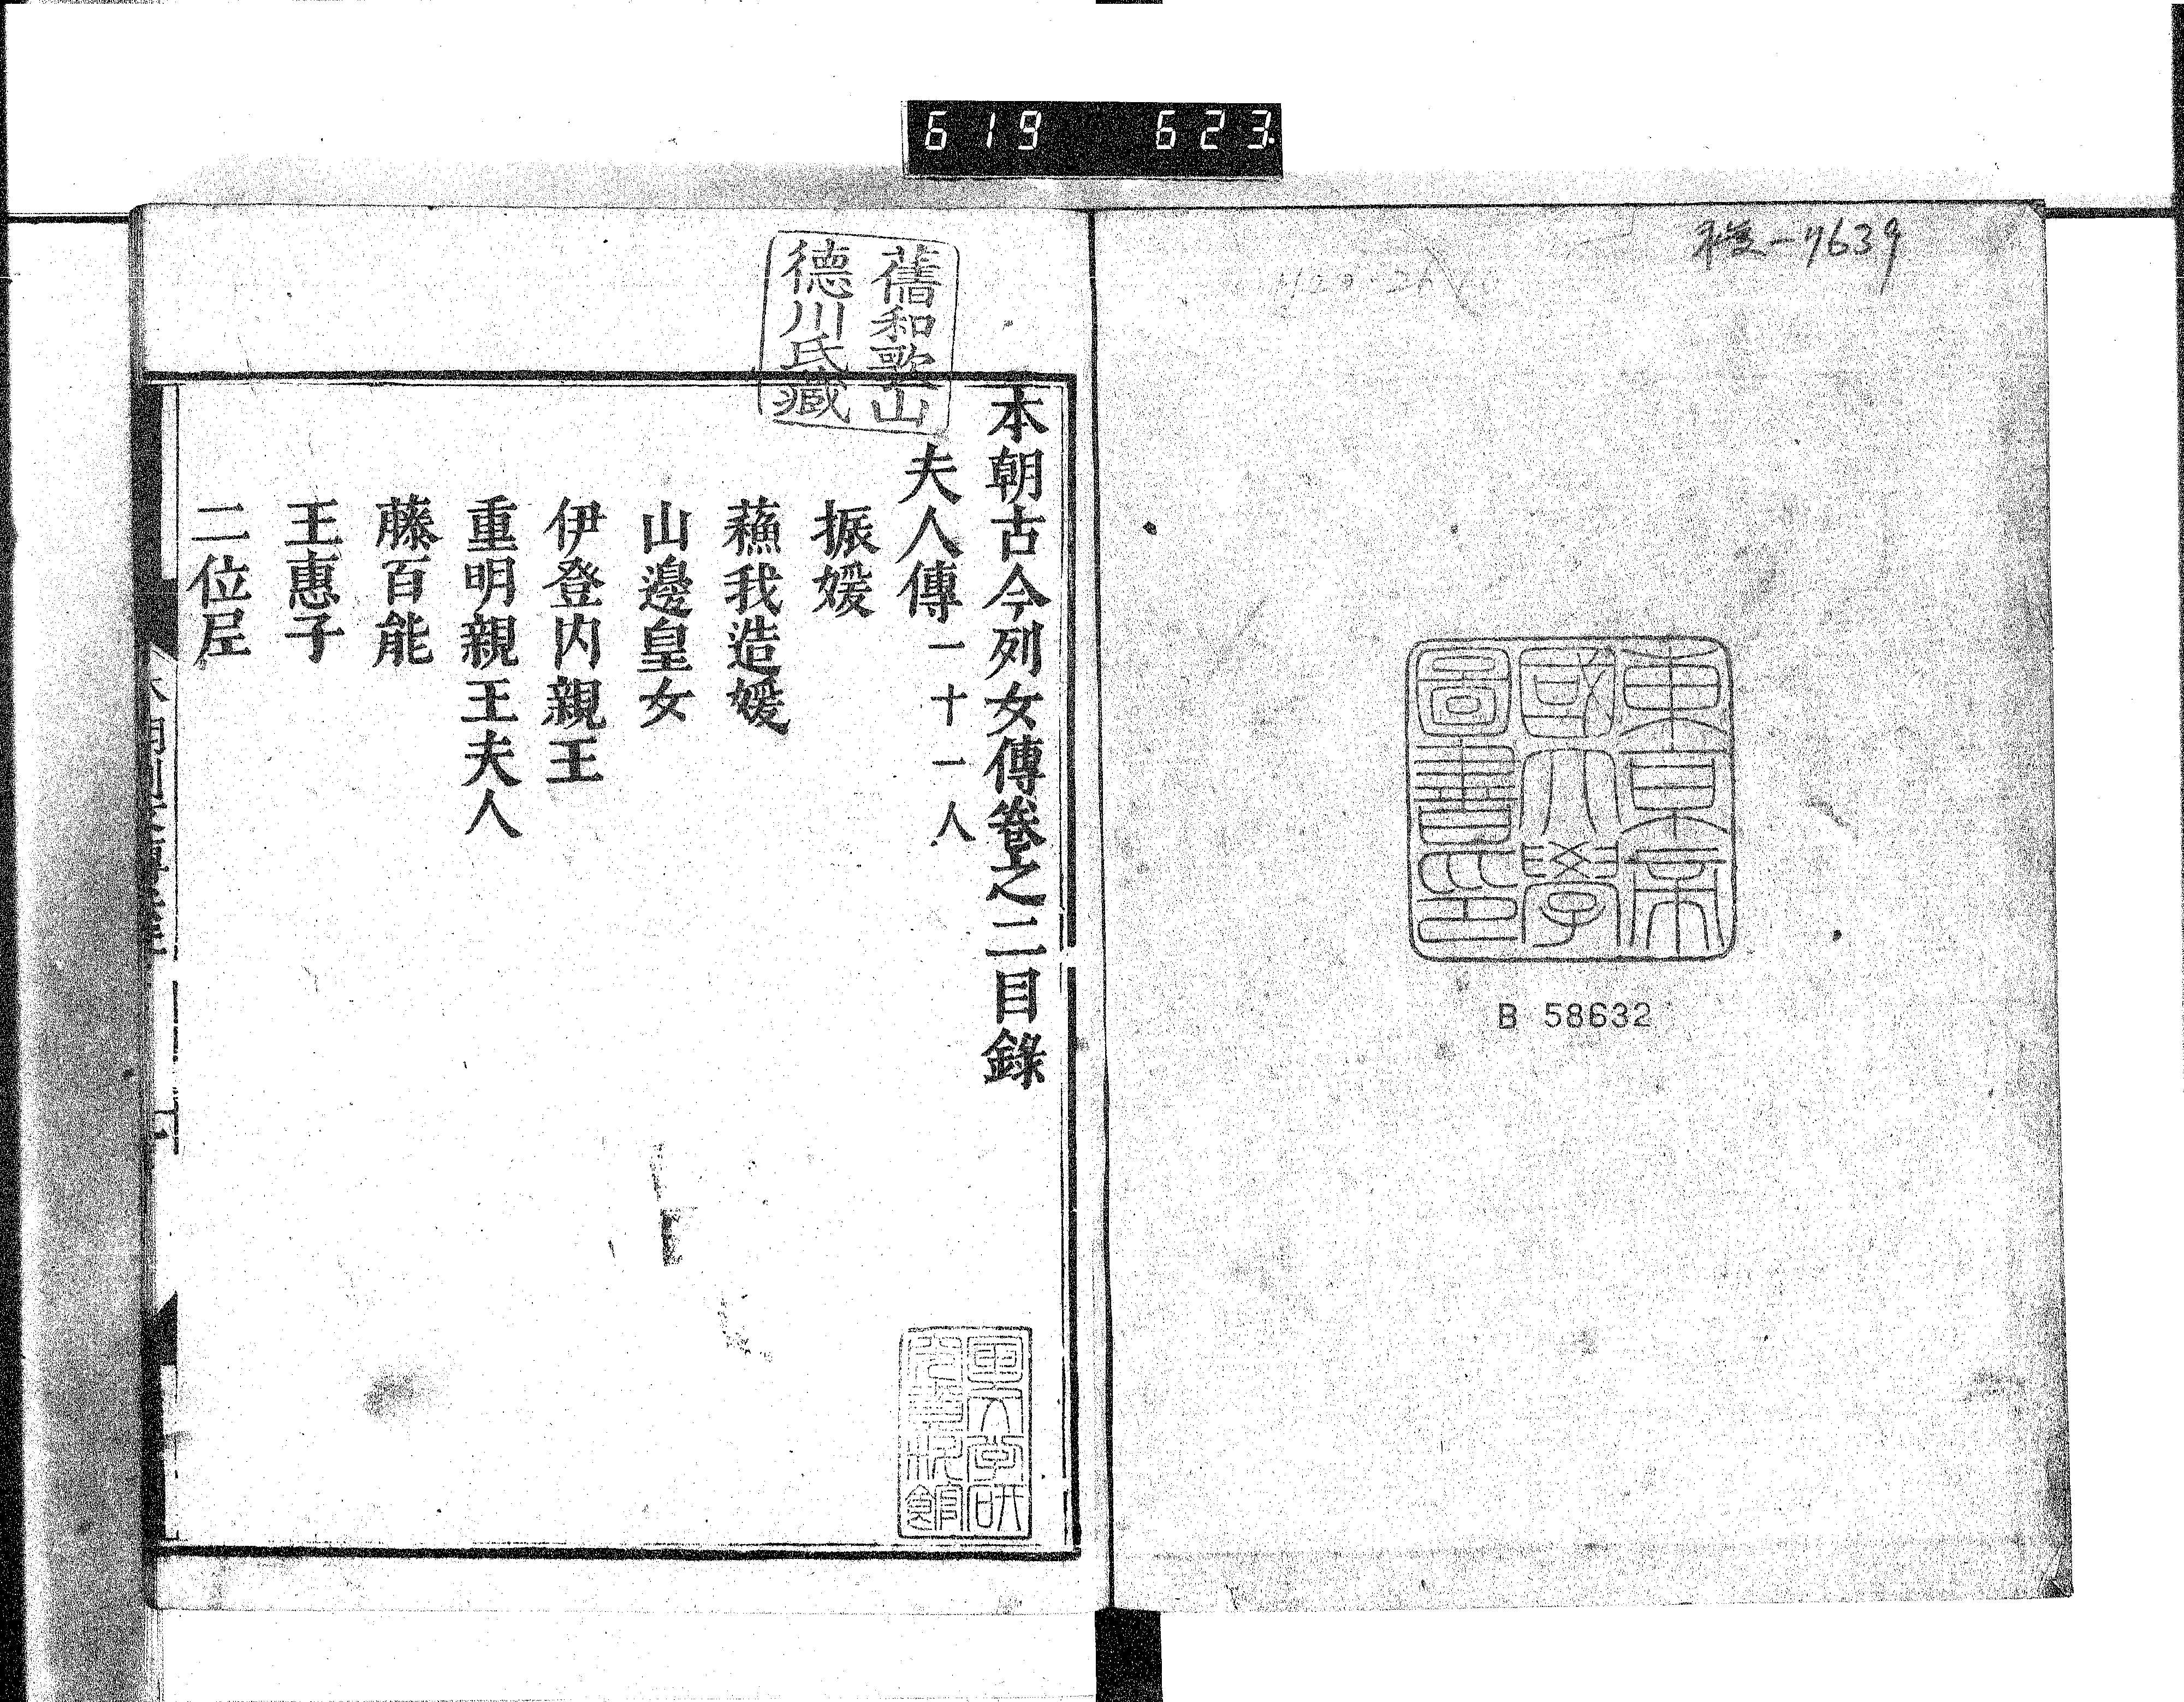 619 623
7639
東京帝
國大學
圖書印
B 58632
舊和歌山
德川氏藏
本朝古今列女傳卷之二目錄
夫人傳一十一人
振媛
蘓我造媛
山邊皇女
伊登内親王
重明親王夫人
藤百能
王惠子
二位尼
國文学研
究資料館